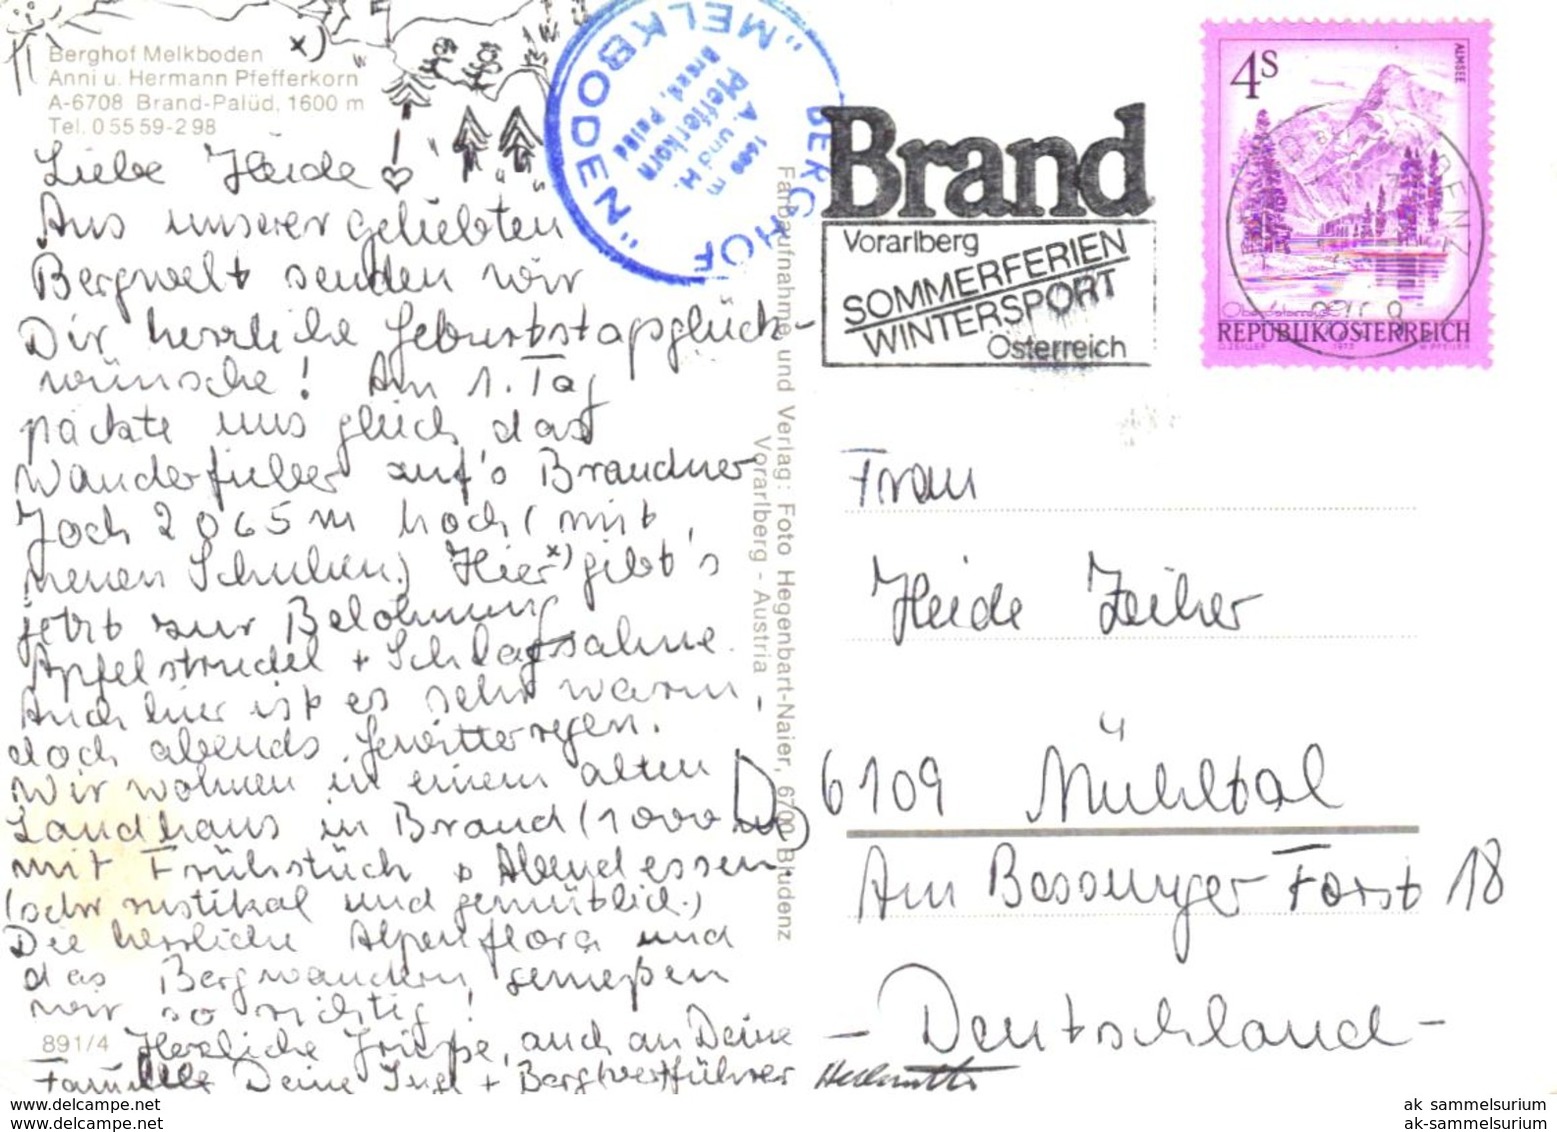 Berghof Melkboden
Anni u. Hermann Pfefferkorn
A-6708 Brand-Palüd, 1600 m
Tel. 0 55 59-2 98
x)
Liebe Heide
Aus unserer geliebten
Bergwelt senden wir
Dir herzliche Geburtstagsglück-
wünsche! Am 1. Tag
packte uns gleich das
Wanderfieber auf's Brandner
Joch 2065 m hoch (mit
neuen Schuhen) Hier x) gibt's
jetzt zur Belohnung
Apfelstrudel + Schlagsahne.
Auch hier ist es sehr warm,
doch abends Gewitterregen.
Wir wohnen in einem alten
Landhaus in Brand (1000 m)
mit Frühstück + Abendessen.
(sehr rustikal und gemütlich.)
Die herrliche Alpenflora und
das Bergwandern genießen
wir so richtig!
891/4 Herzliche Grüße, auch an Deine
Familie Deine Inge + Berg(ver)führer Helmut
"MELKBODEN"
BERGHOF
1600 m
A. und H.
Pfefferkorn
Brand, Palüd
Farbaufnahme und Verlag: Foto Hegenbart-Naier, 6700 Bludenz
Vorarlberg - Austria
Brand
Vorarlberg
SOMMERFERIEN
WINTERSPORT
Österreich
4S
ALMSEE
Oberösterreich
REPUBLIK ÖSTERREICH
1973
Frau
Heide Zeiher
D 6109 Mühltal
Am Bessunger Forst 18
- Deutschland -
delcampe.net
ak-sammelsurium
delcampe.net
ak-sammelsurium